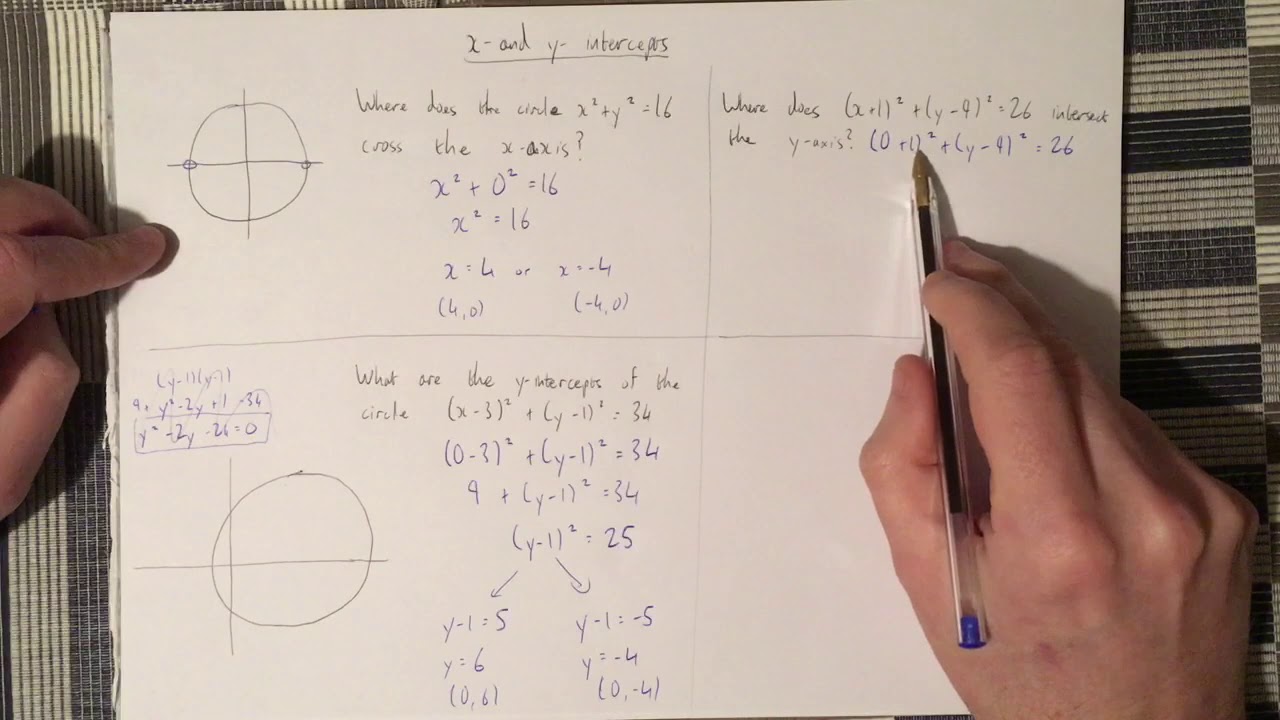 x- and y- intercepts
Where does the circle x² + y² = 16
cross the x-axis?
x² + 0² = 16
x² = 16
x = 4 or x = -4
(4,0) (-4,0)
Where does (x+1)² + (y-9)² = 26 intersect
the y-axis? (0+1)² + (y-9)² = 26
(y-1)(y-1)
9+ y²-2y+1 -34
y² -2y -24=0
What are the y-intercepts of the
circle (x-3)² + (y-1)² = 34
(0-3)² + (y-1)² = 34
9 + (y-1)² = 34
(y-1)² = 25
y-1 = 5 y-1 = -5
y = 6 y = -4
(0,6) (0,-4)